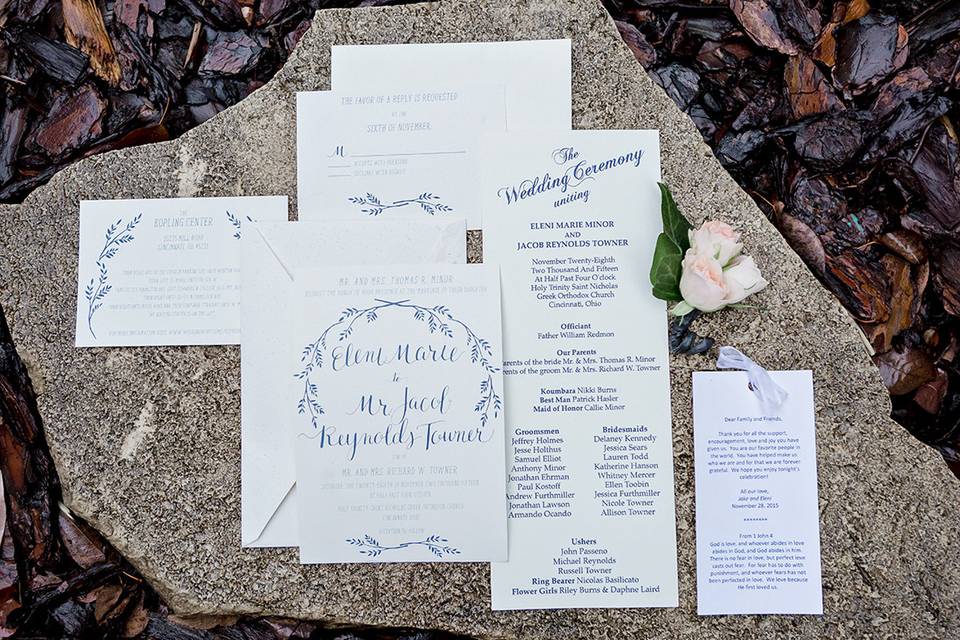 THE FAVOR OF A REPLY IS REQUESTED
BY THE
SIXTH OF NOVEMBER.
M
ACCEPTS WITH PLEASURE
DECLINES WITH REGRET
THE
KOPLING CENTER
CINCINNATI OH
MR. AND MRS. THOMAS R. MINOR
REQUEST THE HONOR OF YOUR PRESENCE AT THE MARRIAGE OF THEIR DAUGHTER
Eleni Marie
to
Mr. Jacob
Reynolds Towner
SON OF
MR. AND MRS. RICHARD W. TOWNER
SATURDAY, THE TWENTY-EIGHTH OF NOVEMBER TWO THOUSAND FIFTEEN
AT HALF PAST FOUR O'CLOCK
HOLY TRINITY SAINT NICHOLAS GREEK ORTHODOX CHURCH
CINCINNATI, OHIO
RECEPTION TO FOLLOW
The
Wedding Ceremony
uniting
ELENI MARIE MINOR
AND
JACOB REYNOLDS TOWNER
November Twenty-Eighth
Two Thousand And Fifteen
At Half Past Four O'clock
Holy Trinity Saint Nicholas
Greek Orthodox Church
Cincinnati, Ohio
Officiant
Father William Redmon
Our Parents
Parents of the bride Mr. & Mrs. Thomas R. Minor
Parents of the groom Mr. & Mrs. Richard W. Towner
Koumbara Nikki Burns
Best Man Patrick Hasler
Maid of Honor Callie Minor
Groomsmen
Jeffrey Holmes
Jesse Holthus
Samuel Elliot
Anthony Minor
Jonathan Ehrman
Paul Kostoff
Andrew Furthmiller
Jonathan Lawson
Armando Ocando
Bridesmaids
Delaney Kennedy
Jessica Sears
Lauren Todd
Katherine Hanson
Whitney Mercer
Ellen Toobin
Jessica Furthmiller
Nicole Towner
Allison Towner
Ushers
John Passeno
Michael Reynolds
Russell Towner
Ring Bearer Nicolas Basilicato
Flower Girls Riley Burns & Daphne Laird
Dear Family and Friends,
Thank you for all the support,
encouragement, love and joy you have
given us. You are our favorite people in
the world. You have helped make us
who we are and for that we are forever
grateful. We hope you enjoy tonight's
celebration!
All our love,
Jake and Eleni
November 28, 2015
********
From 1 John 4
God is love, and whoever abides in love
abides in God, and God abides in him.
There is no fear in love, but perfect love
casts out fear. For fear has to do with
punishment, and whoever fears has not
been perfected in love. We love because
He first loved us.